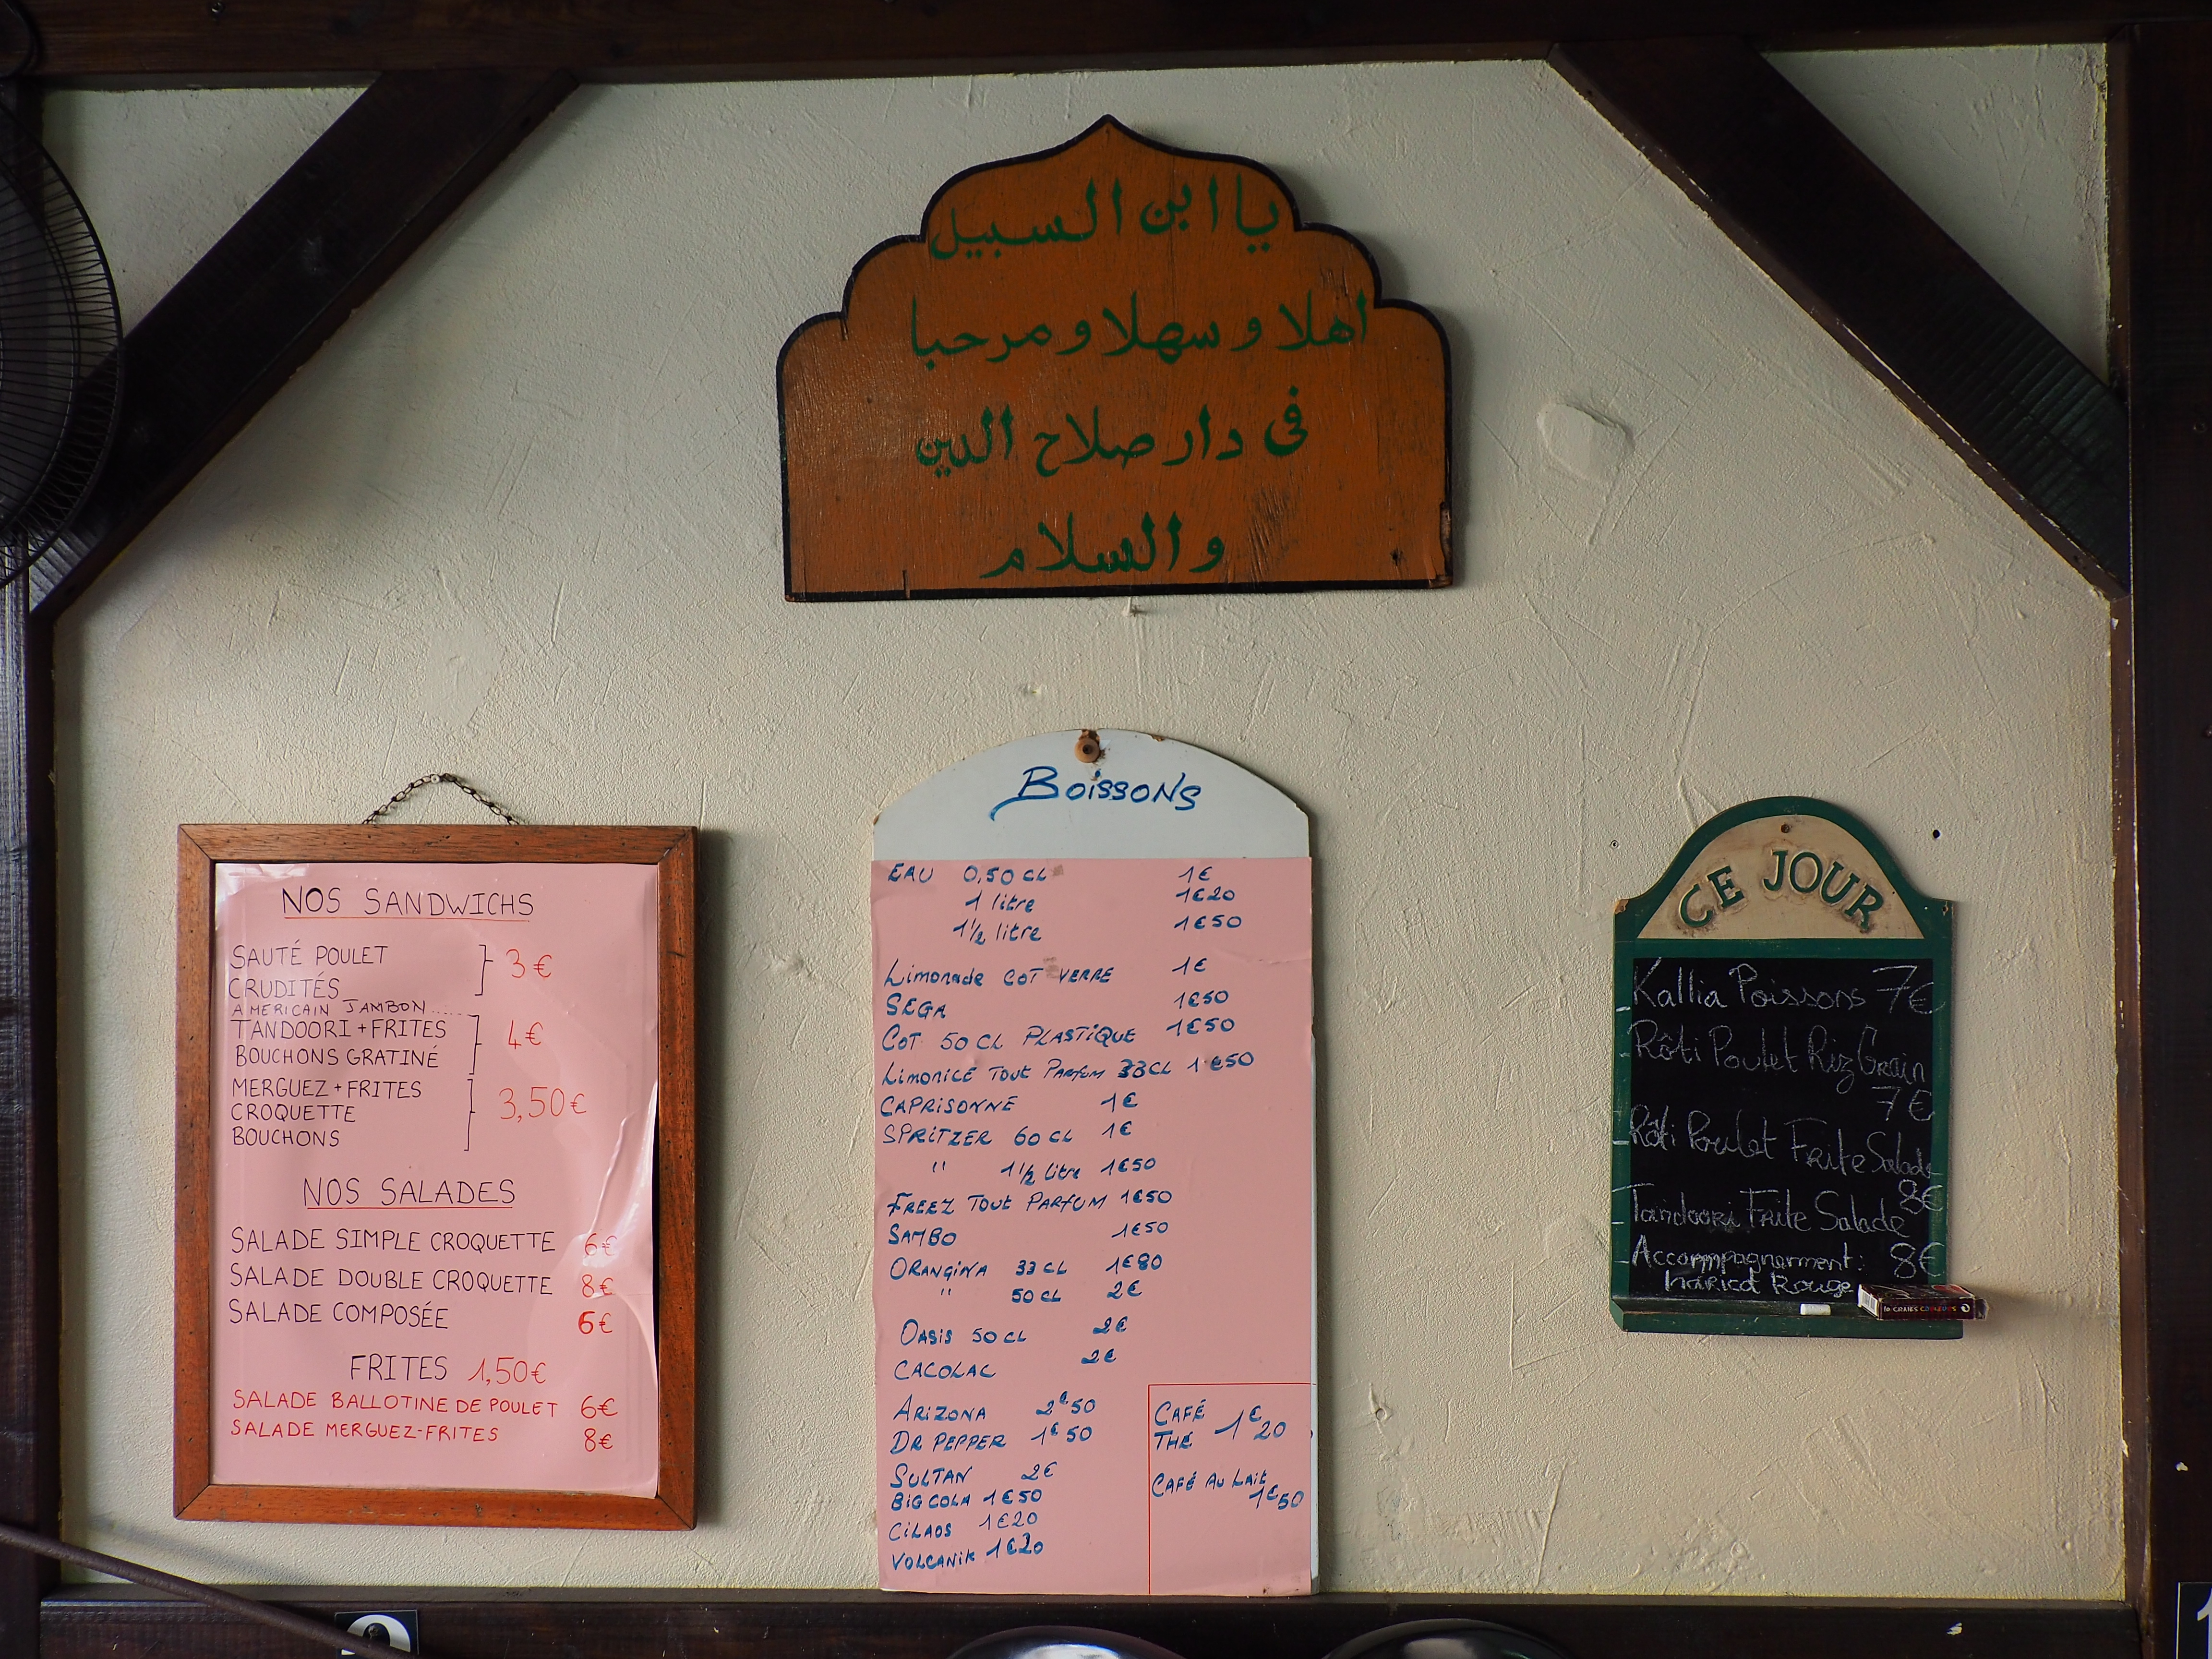 يا ابن السبيل
اهلا و سهلا و مرحبا
فى دار صلاح الدين
والسلام
NOS SANDWICHS
SAUTÉ POULET
CRUDITÉS
3€
AMERICAIN JAMBON.....
TANDOORI + FRITES
BOUCHONS GRATINÉ
4€
MERGUEZ + FRITES
CROQUETTE
BOUCHONS
3,50€
NOS SALADES
SALADE SIMPLE CROQUETTE 6€
SALADE DOUBLE CROQUETTE 8€
SALADE COMPOSÉE 6€
FRITES 1,50€
SALADE BALLOTINE DE POULET 6€
SALADE MERGUEZ-FRITES 8€
BOISSONS
EAU 0,50 CL 1€
1 litre 1€20
1 1/2 litre 1€50
Limonade COT VERRE 1€
SEGA 1€50
COT 50 CL PLASTIQUE 1€50
LIMONICE TOUT PARFUM 33CL 1€50
CAPRISONNE 1€
SPRITZER 60 CL 1€
" 1 1/2 litre 1€50
FREEZ TOUT PARFUM 1€50
SAMBO 1€50
ORANGINA 33 CL 1€80
" 50 CL 2€
OASIS 50 CL 2€
CACOLAC 2€
ARIZONA 2€50
DR PEPPER 1€50
SULTAN 2€
BIG COLA 1€50
CILAOS 1€20
VOLCANIK 1€20
CAFÉ
THÉ
1€20
CAFÉ AU LAIT
1€50
CE JOUR
Kallia Poissons 7€
- Rôti Poulet Riz Grain
7€
- Rôti Poulet Frite Salade
8€
- Tandoori Frite Salade
8€
- Accompagnement:
haricot Rouge
10 CRAIES COULEURS